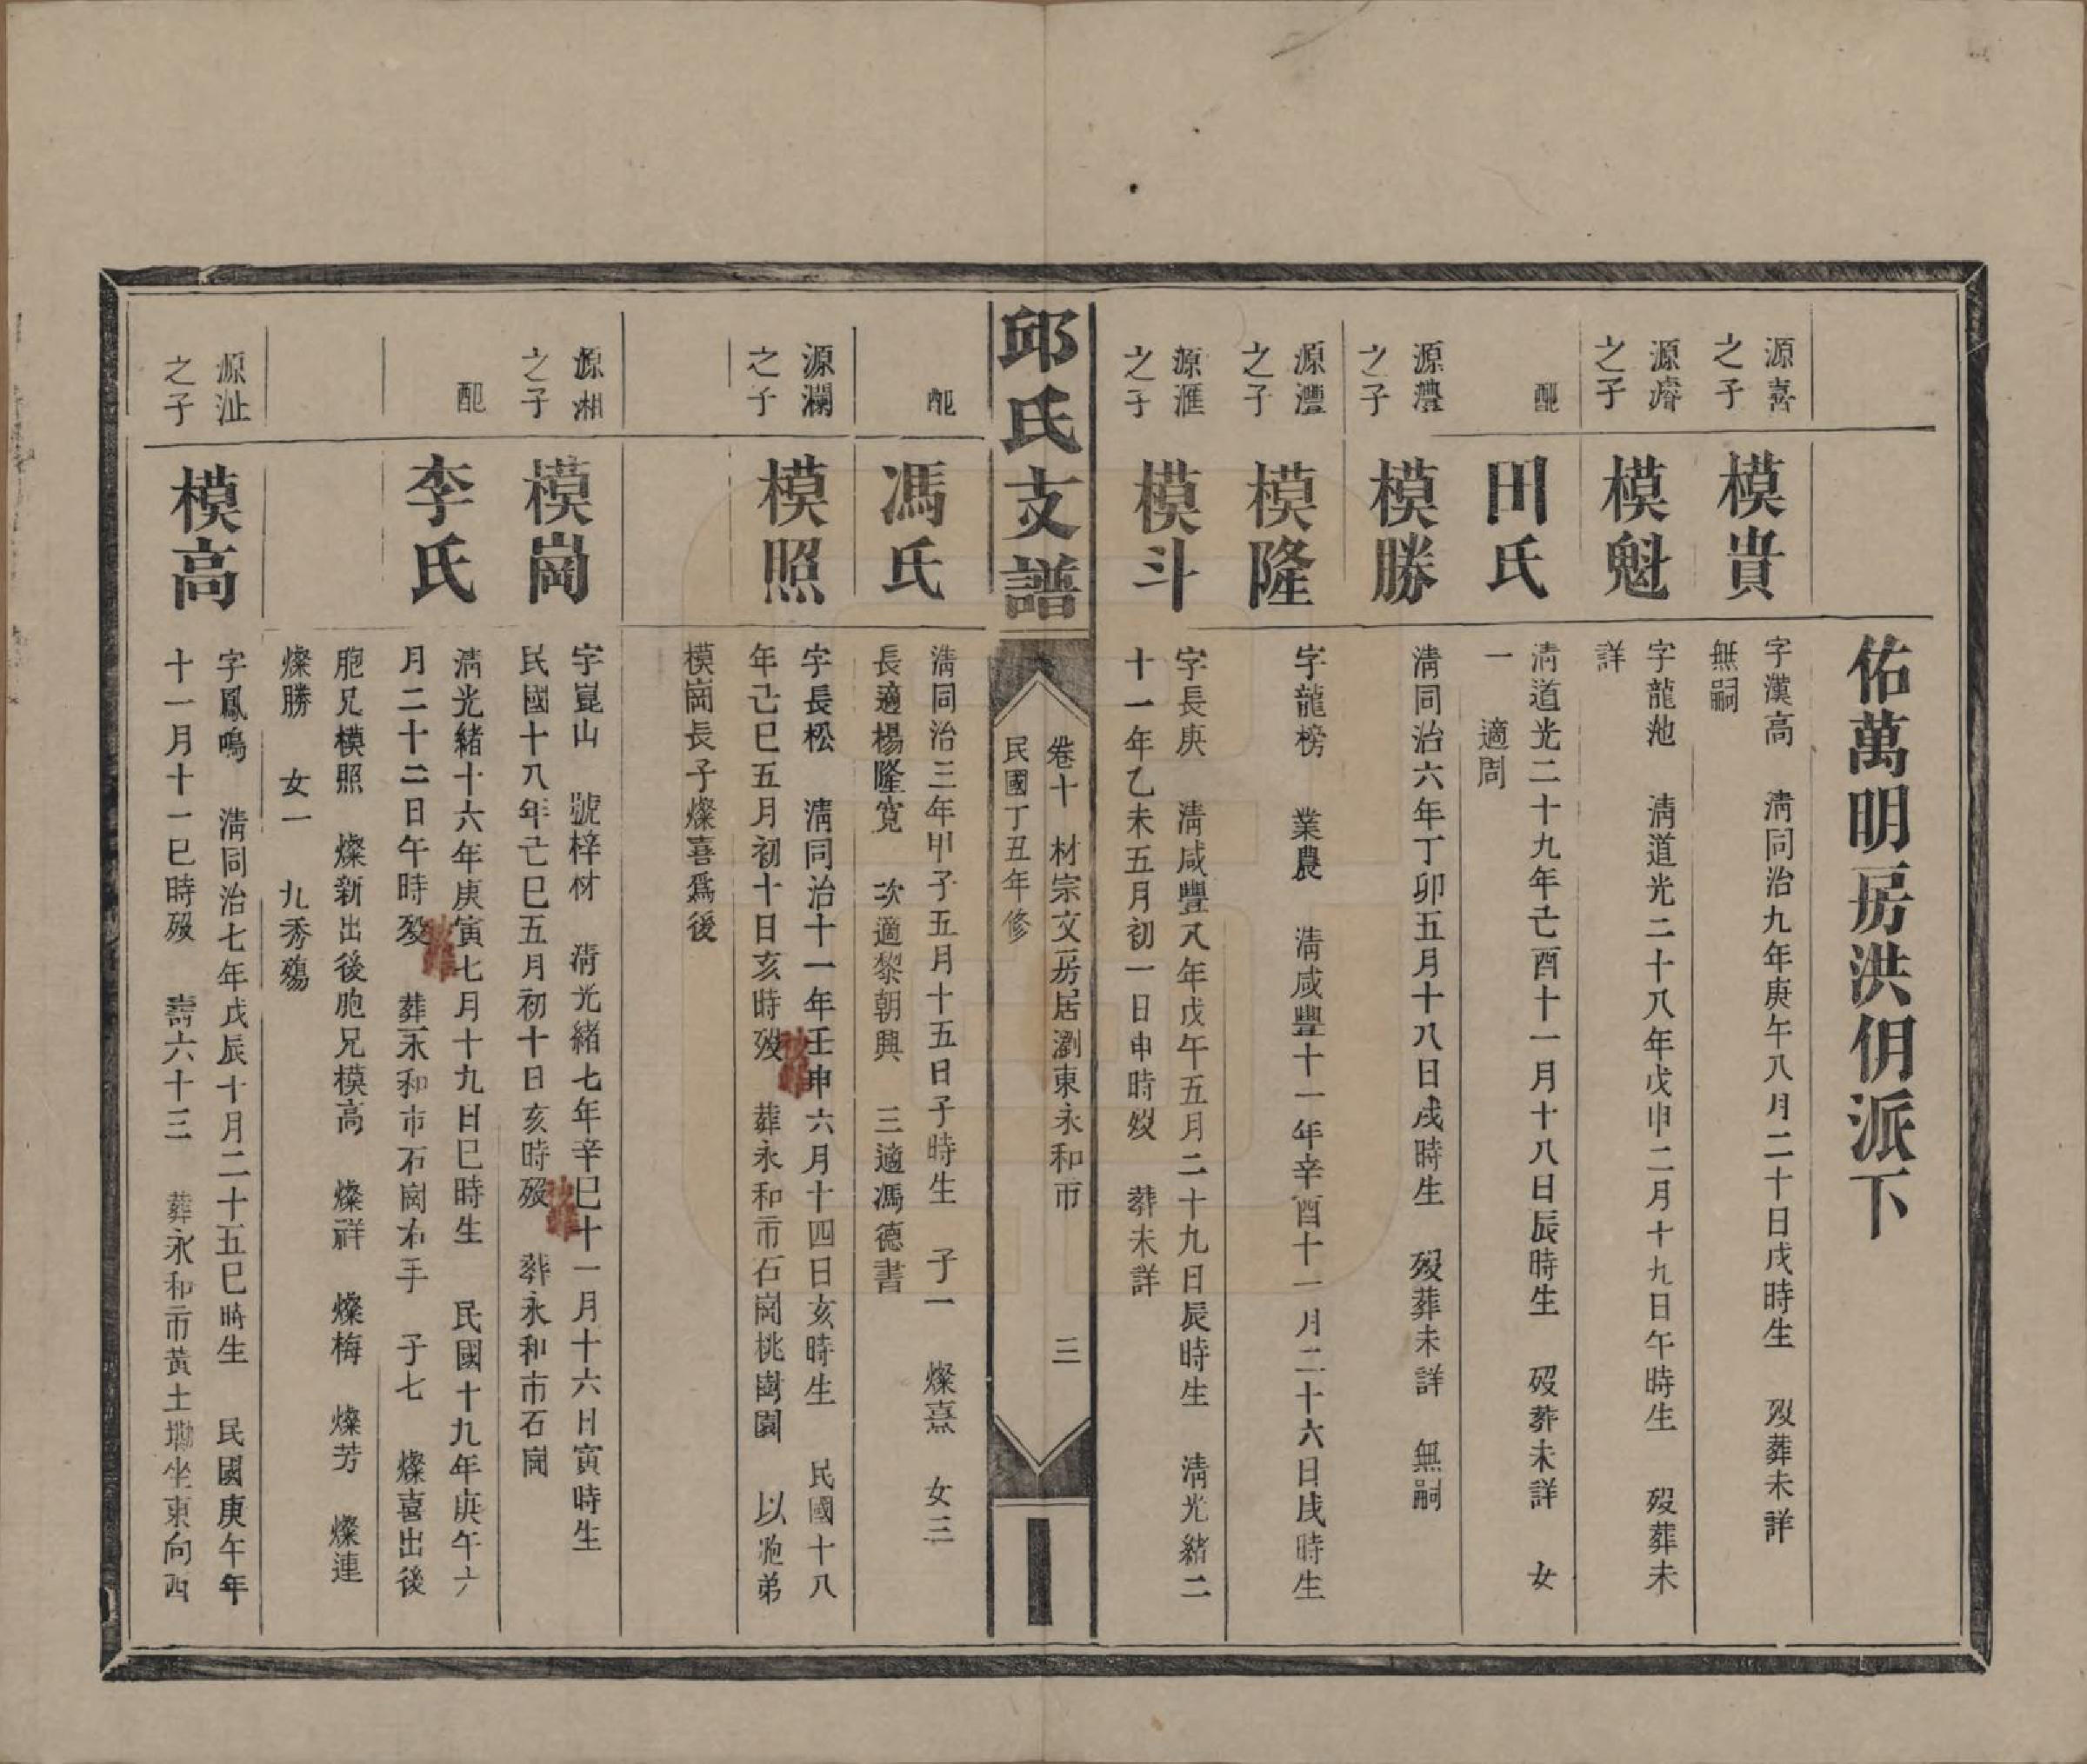 佑萬明房洪佣派下
源喜
之子
模貴
字漢高 淸同治九年庚午八月二十日戌時生 歿葬未詳
無嗣
源濬
之子
模魁
字龍池 淸道光二十八年戊申二月十九日午時生 歿葬未
詳
配
田氏
淸道光二十九年己酉十一月十八日辰時生 歿葬未詳 女
一 適周
源灃
之子
模勝
淸同治六年丁卯五月十八日戌時生 歿葬未詳 無嗣
源灃
之子
模隆
字龍榜 業農 淸咸豐十一年辛酉十一月二十六日戌時生
源滙
之子
模斗
字長庚 淸咸豐八年戊午五月二十九日辰時生 淸光緒二
十一年乙未五月初一日申時歿 葬未詳
邱氏支譜
卷十 材宗文房居瀏東永和市 三
民國丁丑年修
配
馮氏
淸同治三年甲子五月十五日子時生 子一 燦熹 女三
長適楊隆寬 次適黎朝興 三適馮德書
源瀾
之子
模照
字長松 淸同治十一年壬申六月十四日亥時生 民國十八
年己巳五月初十日亥時歿 葬永和市石崗桃樹園 以胞弟
模崗長子燦喜爲後
源湘
之子
模崗
字崑山 號梓材 淸光緒七年辛巳十一月十六日寅時生
民國十八年己巳五月初十日亥時歿 葬永和市石崗
配
李氏
淸光緒十六年庚寅七月十九日巳時生 民國十九年庚午六
月二十二日午時歿 葬永和市石崗右手 子七 燦喜出後
胞兄模照 燦新出後胞兄模高 燦祥 燦梅 燦芳 燦連
燦勝 女一 九秀殤
源沚
之子
模高
字鳳鳴 淸同治七年戊辰十月二十五巳時生 民國庚午年
十一月十一巳時歿 壽六十三 葬永和市黃土墈坐東向西